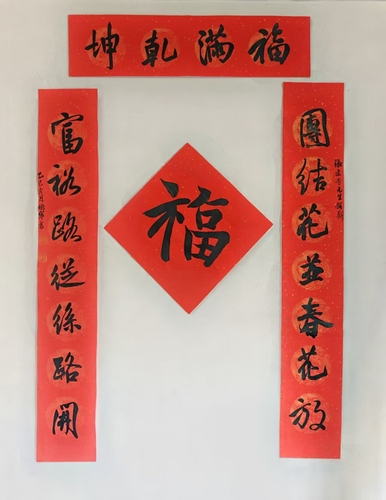 福滿乾坤
團結花並春花放
富裕路從絲路開
福